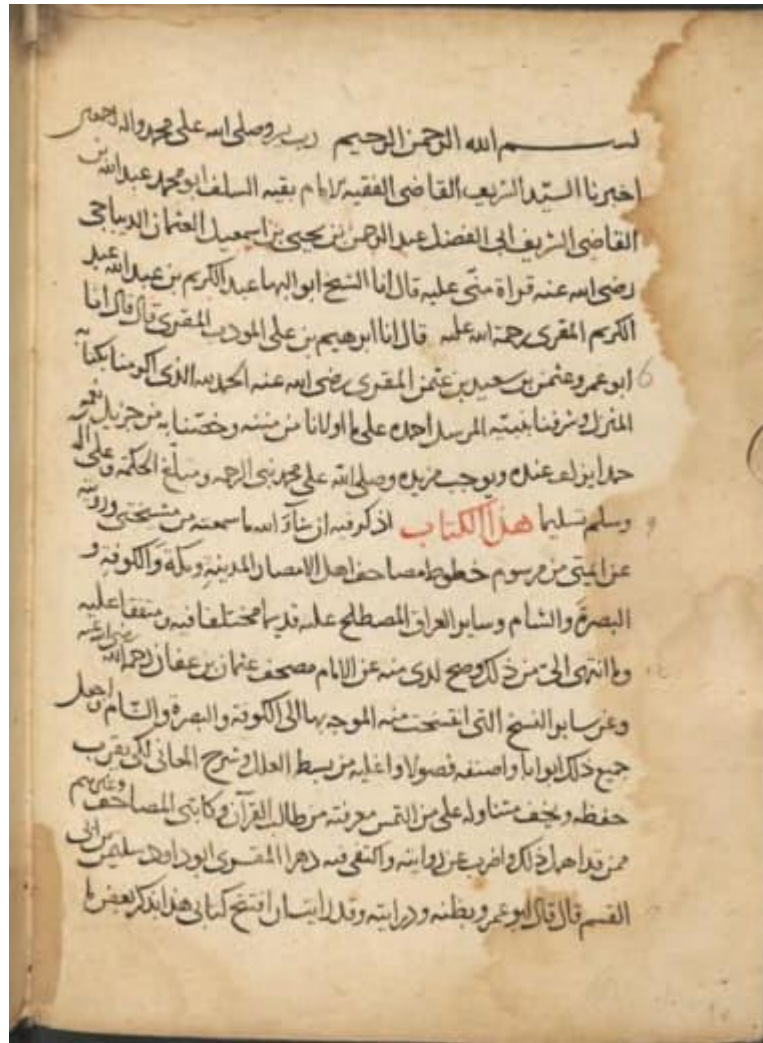 بسم الله الرحمن الرحيم رب يسر وصلى الله على محمد واله اجمعين
اخبرنا السيد الشريف القاضى الفقيه الامام بقية السلف ابو محمد عبد الله بن
القاضى الشريف ابى الفضل عبد الرحمن بن يحيى بن اسمعيل العثمان الديباجى
رضى الله عنه قراة منى عليه قال انا الشيخ ابو البها عبد الكريم بن عبد الله عبد
الكريم المقرى رحمة الله عليه قال انا ابرهيم بن على المودب المقرى قال قال انا
ابو عمرو عثمن بن سعيد بن عثمن المقرى رضى الله عنه الحمد لله الذى اكرمنا بكتابه
المنزل وشرفنا بنبيه المرسل احمده على ما اولانا من مننه وخصنا به من جزيل نعمه
حمدا يزلف عنده ويوجب مزيده وصلى الله على محمد نبى الرحمه ومبلغ الحكمة وعلى اله
وسلم تسليما هذا الكتاب اذكر فيه ان شآء الله ما سمعته من مشيختى ورويته
عن ايمتى من مرسوم خطوط مصاحف اهل الامصار المدينة ومكة والكوفة و
البصرة والشام وساير العراق المصطلح عليه قديما مختلفا فيه ومتفقا عليه
وما انتهى الى من ذلك وصح لدى منه عن الامام مصحف عثمان بن عفان رحمه الله رضى الله عنه
وعن ساير النسخ التى انتسخت منه الموجه بها الى الكوفة والبصرة والشام واجعل
جميع ذلك ابوابا واصنفه فصولا واخليه من بسط العلل وشرح المعانى لكى يقرب
حفظه ويخف متناوله على من التمس معرفته من طالب القرآن وكاتبى المصاحف وغيرهم
ممن قد اهمل ذلك واضرب عن روايته واكتفى فيه دهرا المقرى ابو داود سليمن بن ابى
القسم قال قال ابو عمرو بظنه ودرايته وقد رايت ان افتتح كتابى هذا بذكر بعض ما